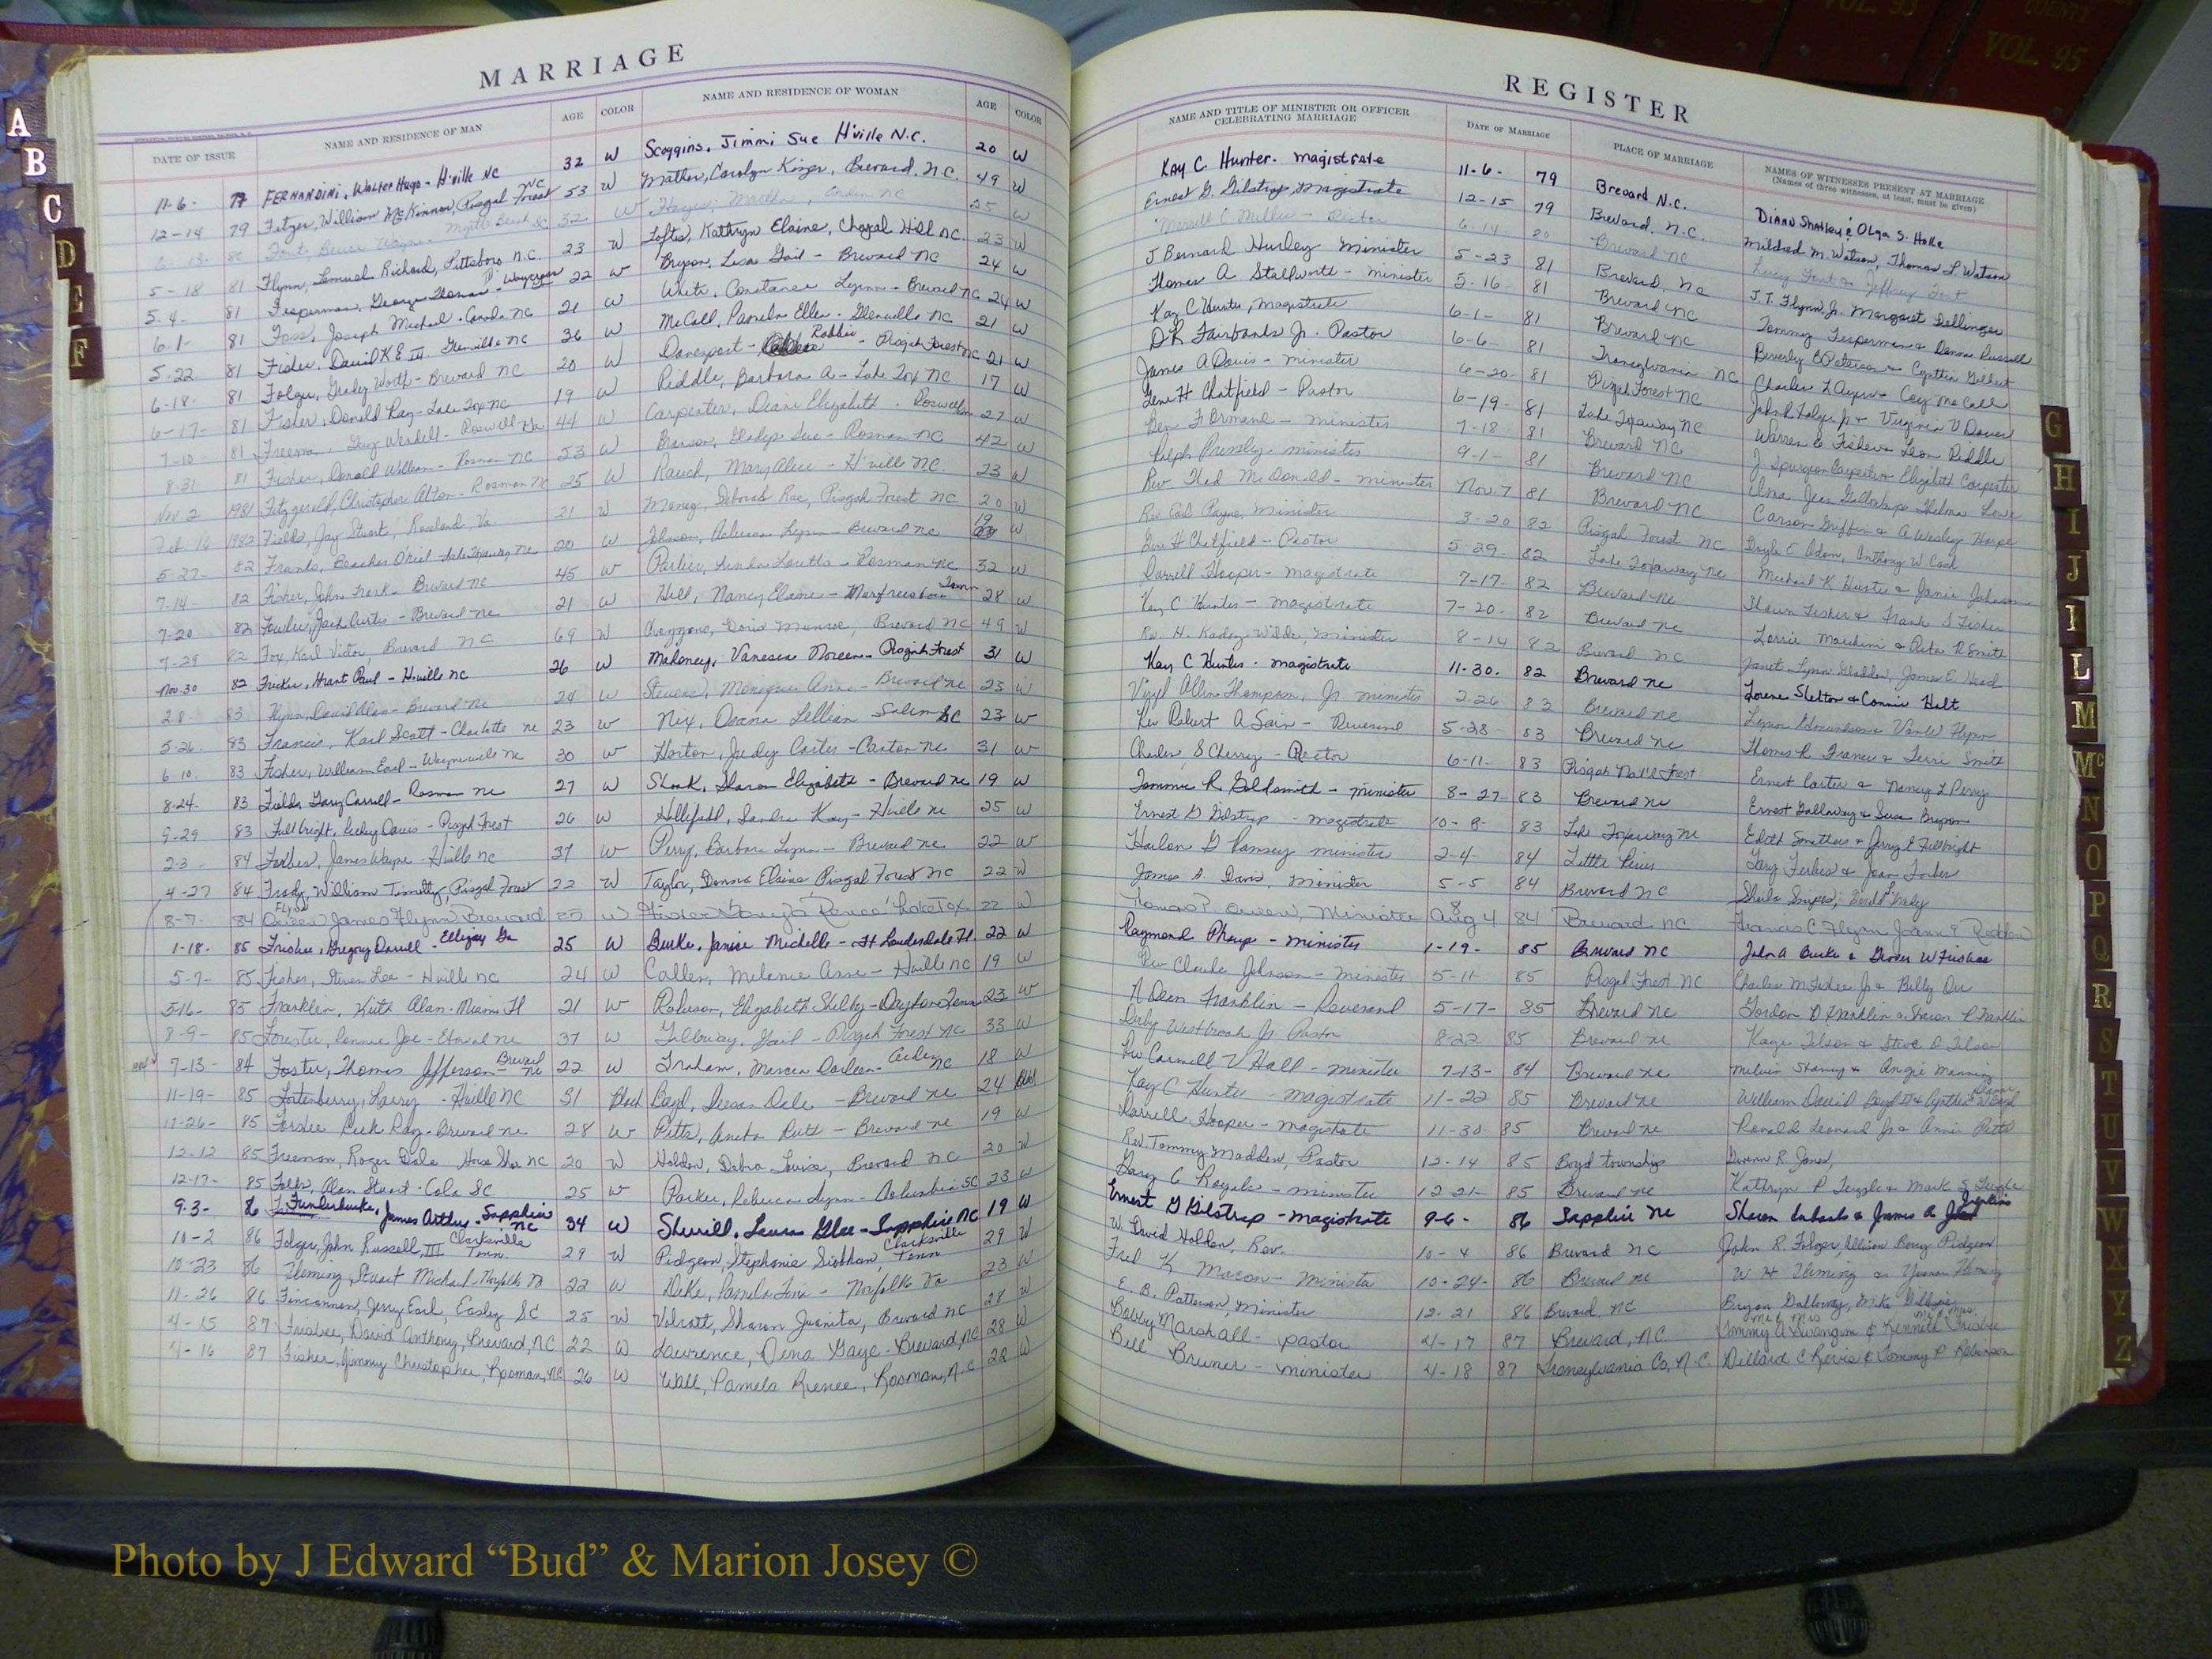 MARRIAGE
DATE OF ISSUE NAME AND RESIDENCE OF MAN AGE COLOR NAME AND RESIDENCE OF WOMAN AGE COLOR
11-6- 79 FERNANDINI, Walter Hugo - H'ville NC 32 W Scoggins, Jimmi Sue H'ville N.C. 20 W
12-14 79 Fitzer, William McKinnon, Pisgah Forest NC 53 W Mather, Carolyn Kizer, Brevard, N.C. 49 W
80 Fort, Bruce Wayne 32 W 25 W
5-18 81 Flynn, Lemuel Richard, Pittsboro N.C. 23 W Loftis, Kathryn Elaine, Chapel Hill N.C. 23 W
5-4- 81 Fesperman, George Thomas 22 W Bryson, Lisa Gail - Brevard NC 24 W
6-1- 81 Foss, Joseph Michael - Canada NC 21 W White, Constance Lynn - Brevard NC 24 W
5-22 81 Fisher, David K E III - Glenville NC 36 W McCall, Pamela Ellen - Glenville NC 21 W
6-18- 81 Folger, Graley Worth - Brevard NC 20 W Davenport - Robbie - Pisgah Forest NC 21 W
6-17- 81 Fisher, Donald Ray - Lake Tox NC 19 W Riddle, Barbara A - Lake Tox NC 17 W
7-10- 81 Freeman, Guy Wendell - Roswell Ga 44 W Carpenter, Diane Elizabeth - Roswell Ga 27 W
8-31 81 Fisher, Donald William - Rosman NC 53 W Gladys Sue - Rosman NC 42 W
Nov 2 1981 Fitzgerald, Christopher Alton - Rosman NC 25 W Rauch, Mary Alice - H'ville NC. 23 W
Feb 16 1982 Fields, Jay Stuart, Roseland, Va. 21 W Deborah Rae, Pisgah Forest NC 20 W
5-27- 82 Franks, Beacher O'neil - Lake Toxaway NC 20 W Johnson, Lynn - Brevard NC 19 W
7-14- 82 Fisher, John Frank - Brevard NC 45 W Parlier, Linda Louetta - Rosman NC 32 W
7-20 82 Fowler, Jack Curtis - Brevard NC 21 W Hill, Nancy Elaine - Murfreesboro Tenn 28 W
7-29 82 Fox, Karl Victor, Brevard NC 69 W Doris Munroe, Brevard NC 49 W
Nov. 30 82 Fricker, Grant Paul - H'ville NC 26 W Mahoney, Vanessa Noreen - Pisgah Forest 31 W
2-8- 83 Flynn, David Alan - Brevard NC 24 W Anne - Brevard NC 23 W
5-26- 83 Francis, Karl Scott - Charlotte NC 23 W Nix, Deana Lillian Salem SC 23 W
6-10- 83 Fisher, William Earl - Waynesville NC 30 W Horton, Judy Carter - Canton NC 31 W
8-24- 83 Fields, Gary Carroll - Rosman NC 27 W Shook, Sharon Elizabeth - Brevard NC 19 W
9-29 83 Fullbright, Davis - Pisgah Forest 26 W Hollifield, Sandra Kay - H'ville NC 25 W
2-3- 84 Forbes, James Wayne - H'ville NC 37 W Perry, Barbara Lynn - Brevard NC 22 W
4-27 84 Frady, William Timothy, Pisgah Forest 22 W Taylor, Donna Elaine Pisgah Forest NC 22 W
8-7- 84 Flynn James Flynn Brevard W Renee Lake Tox 22 W
1-18- 85 Frisbee, Gregory Darrell - Ellijay Ga 25 W Burke, Janise Michelle - Ft Lauderdale Fl. 22 W
5-7- 85 Fisher, Steven Lee - H'ville NC 24 W Callen, Melanie Anne - H'ville NC 19 W
5-16- 85 Franklin, Keith Alan - Miami Fl 21 W Roberson, Elizabeth Shelby - Dayton, Tenn 23 W
8-9- 85 Forester, Ronnie Joe - Etowah NC 37 W Galloway, Gail - Pisgah Forest NC 33 W
1984 7-13- 84 Foster, Thomas Jefferson - Brevard NC 22 W Graham, Marcia Darlean - Arden NC 18 W
11-19- 85 Fortenberry, Larry - H'ville NC 31 Black Boyd, Susan Dale - Brevard NC 24 Blk
11-26- 85 Forster Rick Ray - Brevard NC 28 W Pitts, Anita Ruth - Brevard NC 19 W
12-12 85 Freeman, Roger Dale Horse Shoe NC 20 W Holden, Debra Louise, Brevard NC 20 W
12-17- 85 Folks, Alan Stuart - Cola SC 25 W Parker, Rebecca Lynn - Columbia SC 23 W
9-3- 86 Funderburke, James Arthur - Sapphire NC 34 W Sherrill, Laura Glee - Sapphire NC 19 W
10-2 86 Folger, John Russell, III Clarksville Tenn. 29 W Pidgeon, Stephanie Siobhan, Clarksville Tenn 29 W
10-23 86 Fleming, Stuart Michael - Norfolk Va 22 W Dike, Pamela Tina - Norfolk Va 23 W
11-26 86 Fincannon, Jerry Earl, Easley SC 25 W Sharon Juanita, Brevard NC 28 W
4-15 87 Frisbee, David Anthony, Brevard, NC 22 W Lawrence, Dena Gaye - Brevard, NC 28 W
4-16 87 Fisher, Jimmy Christopher, Rosman, NC 26 W Wall, Pamela Renee, Rosman, N.C 22 W
REGISTER
NAME AND TITLE OF MINISTER OR OFFICER CELEBRATING MARRIAGE DATE OF MARRIAGE PLACE OF MARRIAGE NAMES OF WITNESSES PRESENT AT MARRIAGE
(Names of three witnesses, at least, must be given)
Kay C. Hunter - magistrate 11-6- 79 Brevard N.C. Diann Shatley & Olga S. Holle
Ernest G. Gilstrap, Magistrate 12-15 79 Brevard, N.C. Mildred M. Watson, Thomas L Watson
Merrill C Miller - Rector 6-14- 80 Brevard NC Lucy Fort & Jeffrey Fort
J Bernard Hurley Minister 5-23 81 Brevard, NC J.T. Flynn, Jr. Margaret Dellinger
Thomas A Stallworth - Minister 5-16- 81 Brevard NC Tommy Fesperman & Donna Russell
Kay C Hunter, Magistrate 6-1- 81 Brevard NC Beverly B Peterson & Cynthia Gilbert
D R Fairbanks Jr. Pastor 6-6- 81 Transylvania NC Charles L Ayers & Coy McCall
James A Davis - minister 6-20- 81 Pisgah Forest NC John R Folger Jr & Virginia V Dover
Gene H Chatfield - Pastor 6-19- 81 Lake Toxaway NC Warren E Fisher & Leon Riddle
Ben F Ormand - minister 7-18 81 Brevard NC J. Spurgeon Carpenter & Elizabeth Carpenter
Ralph Pressley - minister 9-1- 81 Brevard NC Jean Galloway & Thelma Lowe
Rev Ted McDonald - minister Nov-7 81 Brevard NC Carson Griffin & A Wesley Harpe
Rev Earl Payne, Minister 3-20 82 Pisgah Forest NC Doyle E Odom, Anthony W Case
Gene H Chatfield - Pastor 5-29- 82 Lake Toxaway NC Michael K Hunter & Janie Johnson
Darrell Hooper - Magistrate 7-17- 82 Brevard NC Fisher & Frank S Fisher
Kay C Hunter - Magistrate 7-20- 82 Brevard NC Lorrie & Rita R Smith
Rev. H. Wilder, Minister 8-14 82 Brevard NC Janet Lynn Gladden, James E Head
Kay C Hunter - magistrate 11-30- 82 Brevard NC Lorene Shelton & Connie Holt
Virgil Allen Thompson, Jr. minister 2-26 83 Brevard NC Van W Flynn
Rev Robert A Sain - Reverend 5-28- 83 Brevard NC Thomas R Francis & Terri Smith
Charles S Cherry - Rector 6-11- 83 Pisgah Nat'l Forest Ernest Carter & Nancy L Perry
Tommie R Goldsmith - minister 8-27- 83 Brevard NC Ernest Galloway & Susan Bryson
Ernest G Gilstrap - magistrate 10-8- 83 Lake Toxaway NC Edith Smathers & Jerry E Fullbright
Harlon G Ramsey minister 2-4- 84 Little River Gary Forbes & Joan Forbes
James A. Davis, Minister 5-5 84 Brevard NC Sheila Snipes, Gerald Frady
Thomas P Owen, Minister Aug 4 84 Brevard NC Francis C Flynn Joann Y Redden
Raymond Phoup - minister 1-19- 85 Brevard NC John A Burke & Grover W Frisbee
Rev Claude Johnson - minister 5-11- 85 Pisgah Forest NC Charles M Fisher Jr & Billy Orr
N Dean Franklin - Reverend 5-17- 85 Brevard NC Gordon D Franklin & Sharon P Franklin
Derby Westbrook Jr Pastor 8-22 85 Brevard NC Kaye Tilson & Steve D Tilson
Rev Carmell V Hall - minister 7-13- 84 Brevard NC Melvin Stancy & Angie Manning
Kay C Hunter - magistrate 11-22 85 Brevard NC William David Boyd
Darrell Hooper - magistrate 11-30- 85 Brevard NC Ronald Leonard Jr & Annie Pitts
Rev. Tommy Madden, Pastor 12-14 85 Boyd township R. Jones,
Gary C Royals - minister 12-21- 85 Brevard NC Kathryn P & Mark S
Ernest G Gilstrap - magistrate 9-6- 86 Sapphire NC Sharon & James A Jenkins
W. David Holden, Rev. 10-4 86 Brevard NC John R. Folger, Allison Berry Pidgeon
Fred K Macon - minister 10-24- 86 Brevard NC W H Fleming & Fleming
E. B. Patterson, Minister 12-21 86 Brevard NC Bryan Galloway, Mike
Bobby Marshall - pastor 4-17 87 Brevard, N.C. Mr & Mrs Tommy A Swangim & Mr. & Mrs. Kenneth Frisbee
Bill Bruner - minister 4-18 87 Transylvania Co, N.C. Dillard C Revis & Tommy P Robinson
A
B
C
D
E
F
G
H
I
J
L
M
Mc
N
O
P
Q
R
S
T
U
V
W
X
Y
Z
VOL. 93
COUNTY
VOL. 95
Photo by J Edward “Bud” & Marion Josey ©